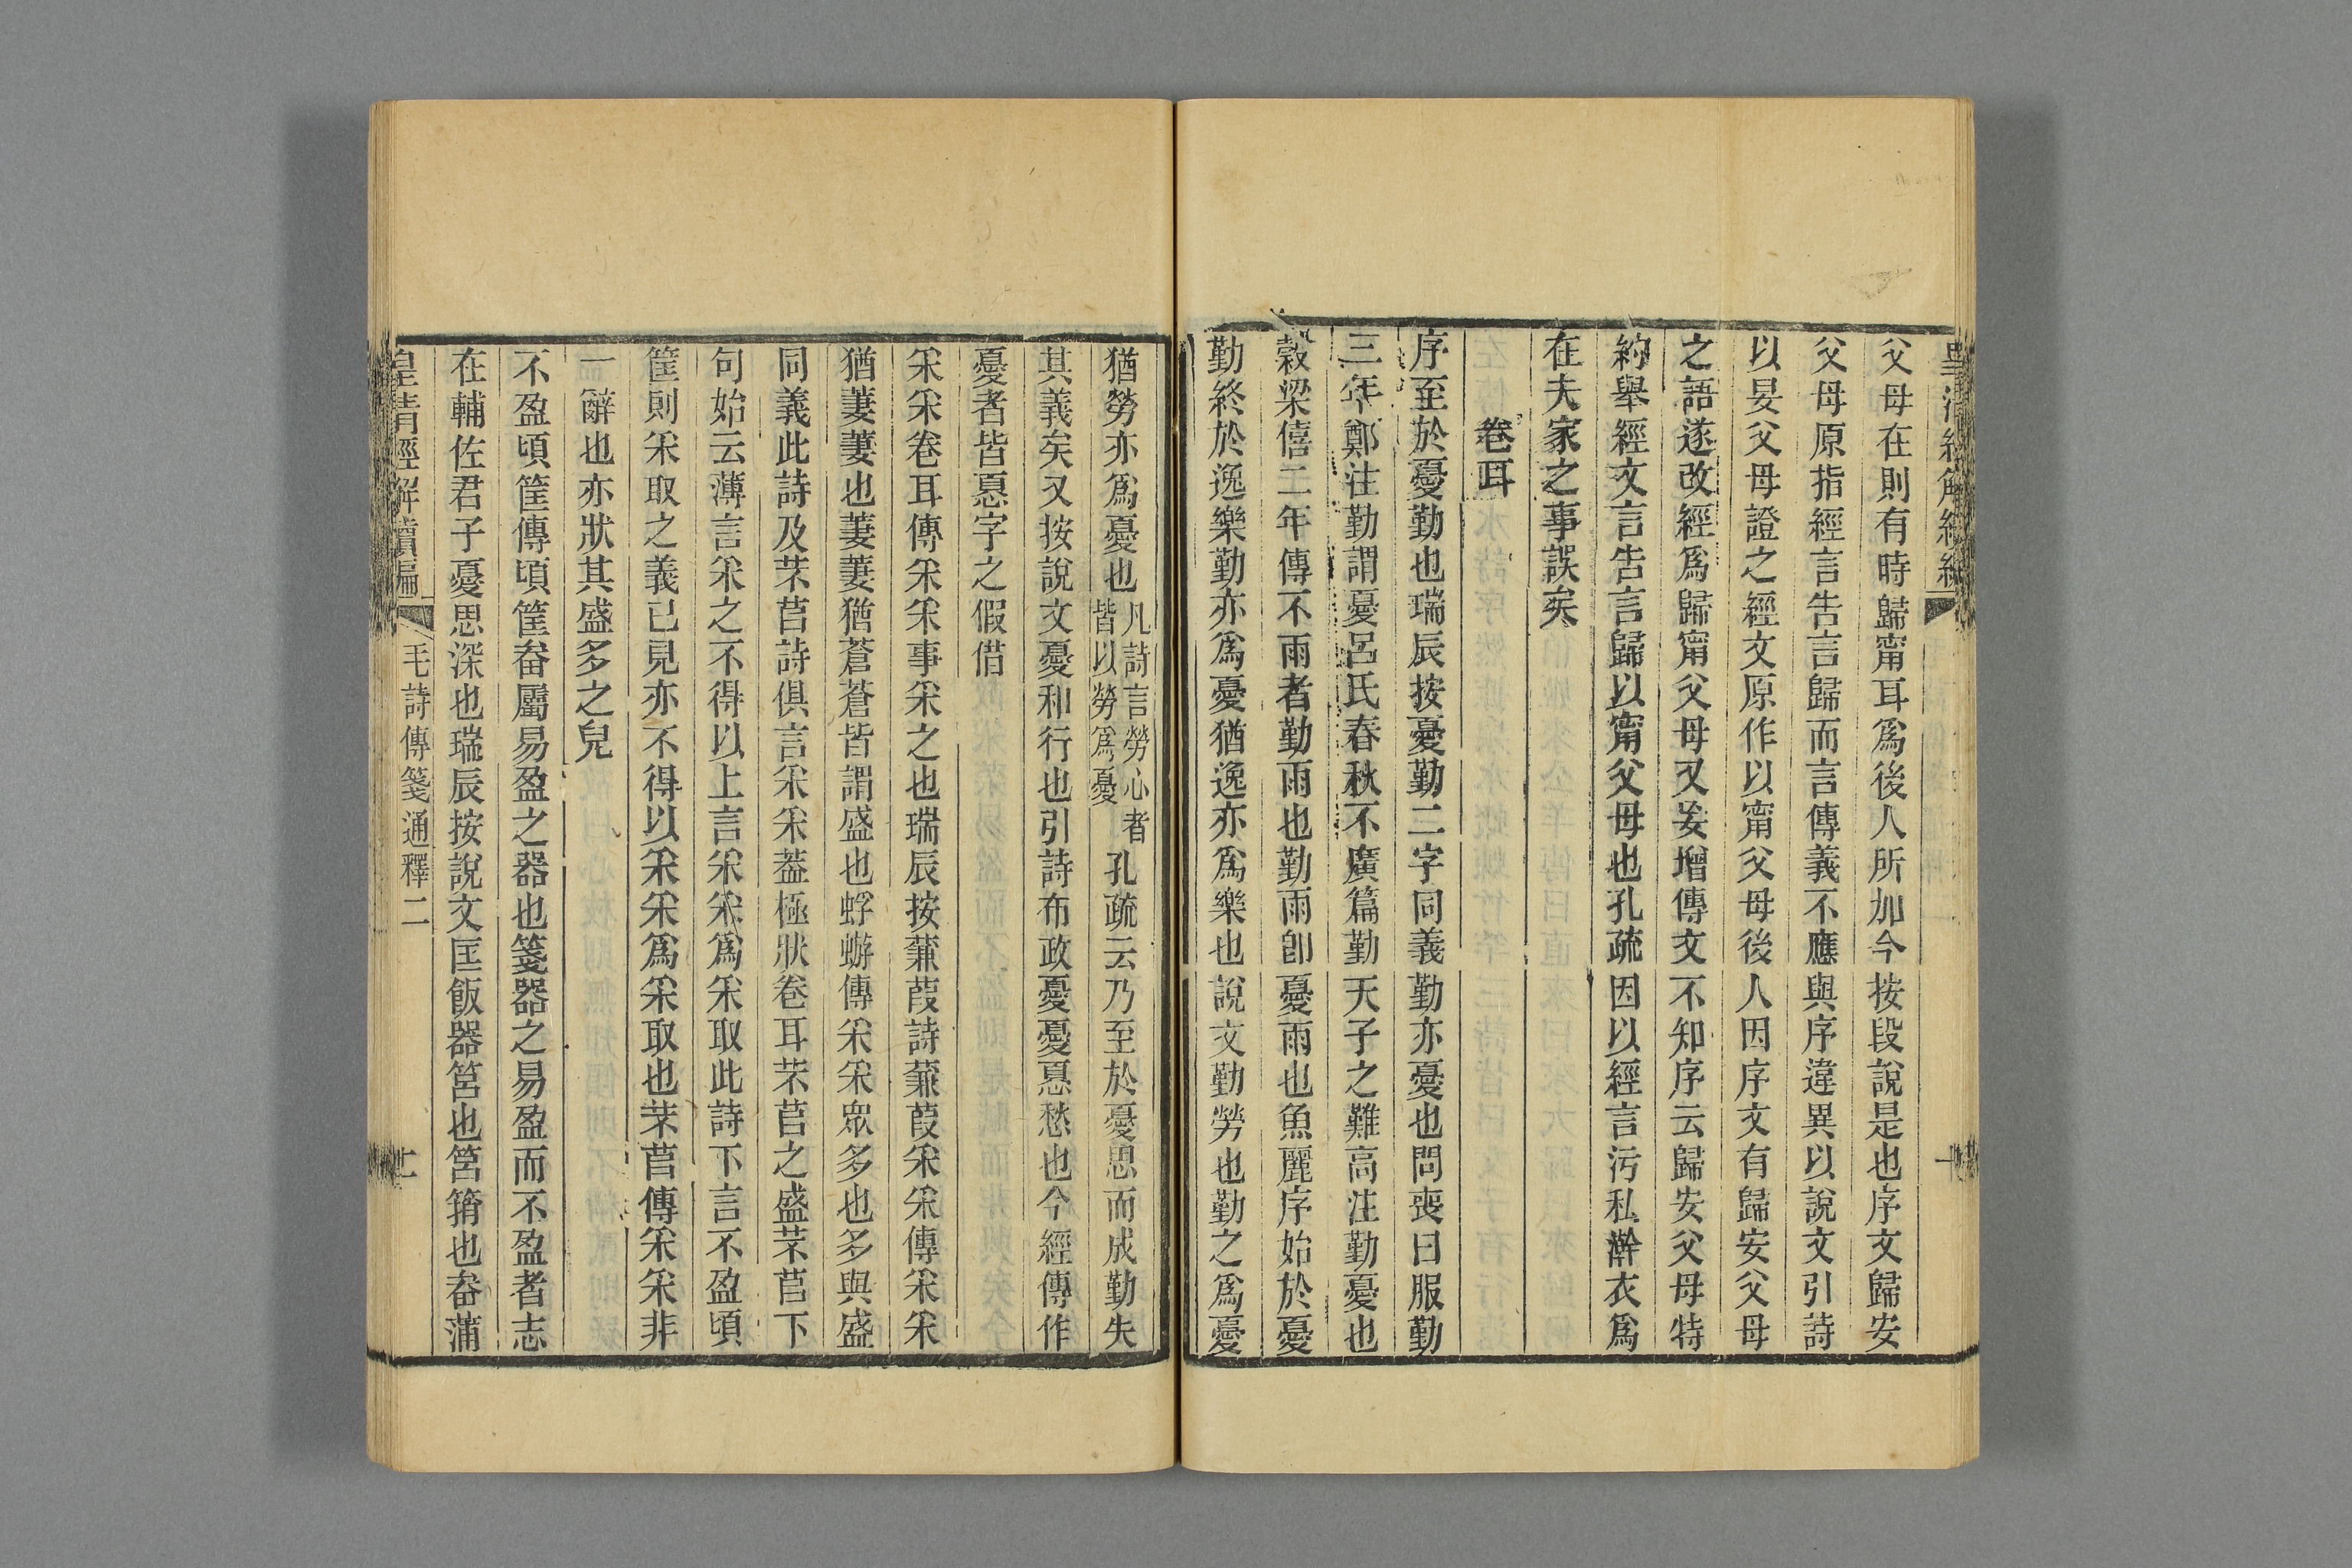 父母在則有時歸甯耳爲後人所加今按段說是也序文歸安
父母原指經言告言歸而言傳義不應與序違異以說文引詩
以晏父母證之經文原作以甯父母後人因序文有歸安父母
之語遂改經爲歸甯父母又妄增傳文不知序云歸安父母特
約舉經文言告言歸以甯父母也孔疏因以經言污私澣衣爲
在夫家之事誤矣
卷耳
序至於憂勤也瑞辰按憂勤二字同義勤亦憂也問喪曰服勤
三年鄭注勤謂憂呂氏春秋不廣篇勤天子之難高注勤憂也
榖梁僖二年傳不雨者勤雨也勤雨卽憂雨也魚麗序始於憂
勤終於逸樂勤亦爲憂猶逸亦爲樂也說文勤勞也勤之爲憂
猶勞亦爲憂也凡詩言勞心者皆以勞爲憂孔疏云乃至於憂思而成勤失
其義矣又按說文憂和行也引詩布政憂憂惪愁也今經傳作
憂者皆惪字之假借
采采卷耳傳采采事采之也瑞辰按蒹葭詩蒹葭采采傳采采
猶萋萋也萋萋猶蒼蒼皆謂盛也蜉蝣傳采采眾多也多與盛
同義此詩及芣苢詩俱言采采蓋極狀卷耳芣苢之盛芣苢下
句始云薄言采之不得以上言采采爲采取此詩下言不盈頃
筐則采取之義已見亦不得以采采爲采取也芣苢傳采采非
一辭也亦狀其盛多之皃
不盈頃筐傳頃筐畚屬易盈之器也箋器之易盈而不盈者志
在輔佐君子憂思深也瑞辰按說文匡飯器筥也筥䈰也畚蒲
皇清經解續編 毛詩傳箋通釋二